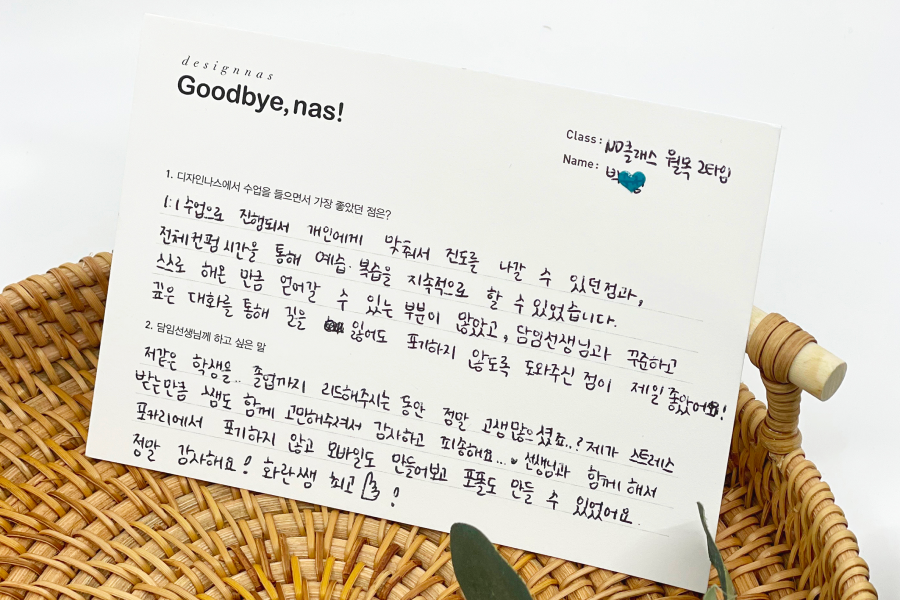 designnas
Goodbye, nas!
Class : ND클래스 월목 2타임
Name : 박
1. 디자인나스에서 수업을 들으면서 가장 좋았던 점은?
1:1 수업으로 진행되서 개인에게 맞춰서 진도를 나갈 수 있던점과,
전체컨펌시간을 통해 예습·복습을 지속적으로 할 수 있었습니다.
스스로 해온 만큼 얻어갈 수 있는 부분이 많았고, 담임선생님과 꾸준하고
깊은 대화를 통해 길을 잃어도 포기하지 않도록 도와주신 점이 제일좋았어요!
2. 담임선생님께 하고 싶은 말
저같은 학생을.. 졸업까지 리드해주시는 동안 정말 고생많으셨죠..? 제가 스트레스
받는만큼 쌤도 함께 고민해주셔서 감사하고 죄송해요... 선생님과 함께 해서
포카리에서 포기하지 않고 모바일도 만들어보고 포폴도 만들 수 있었어요.
정말 감사해요! 화란쌤 최고!